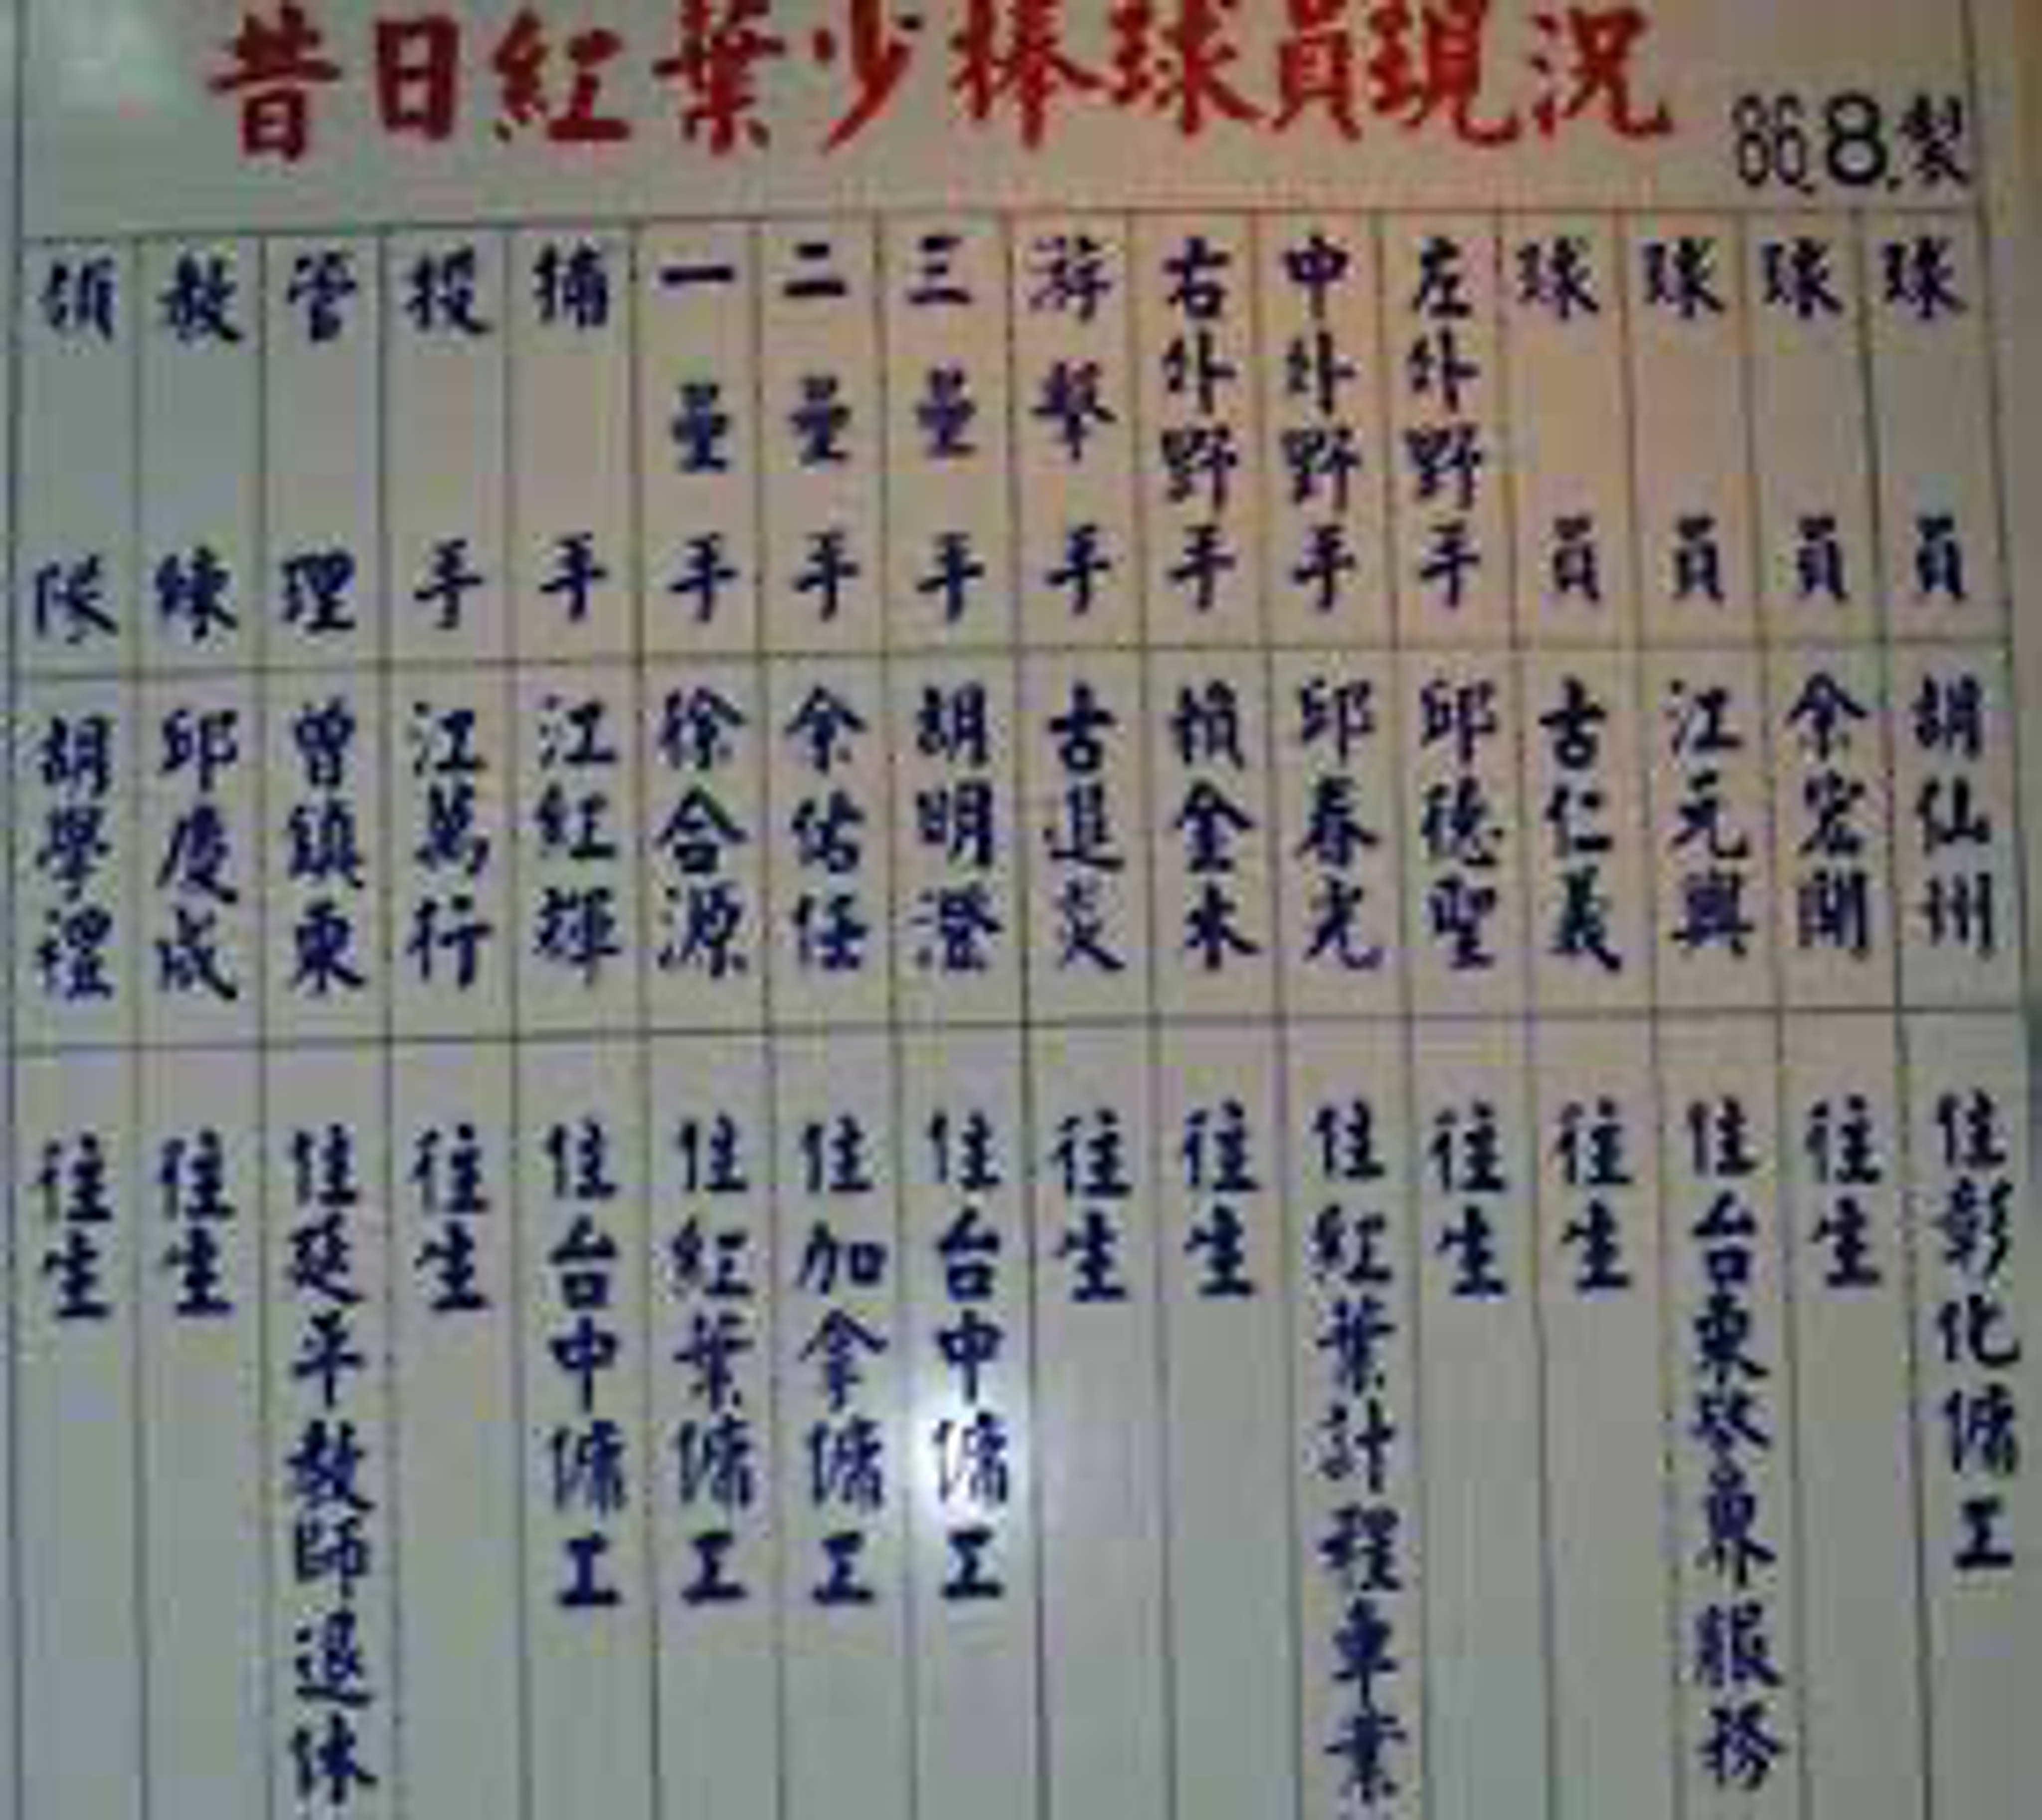 昔日紅葉少棒球員現況
86.8.製
領隊 胡學禮 往生
教練 邱慶成 往生
管理 曾鎮東 住延平教師退休
投手 江萬行 往生
捕手 江紅輝 住台中傭工
一壘手 徐合源 住紅葉傭工
二壘手 余佑任 住加拿傭工
三壘手 胡明澄 住台中傭工
游擊手 古進炎 往生
右外野手 賴金木 往生
中外野手 邱春光 住紅葉計程車業
左外野手 邱德聖 往生
球員 古仁義 往生
球員 江元興 住台東政界服務
球員 余宏開 往生
球員 胡仙州 住彰化傭工